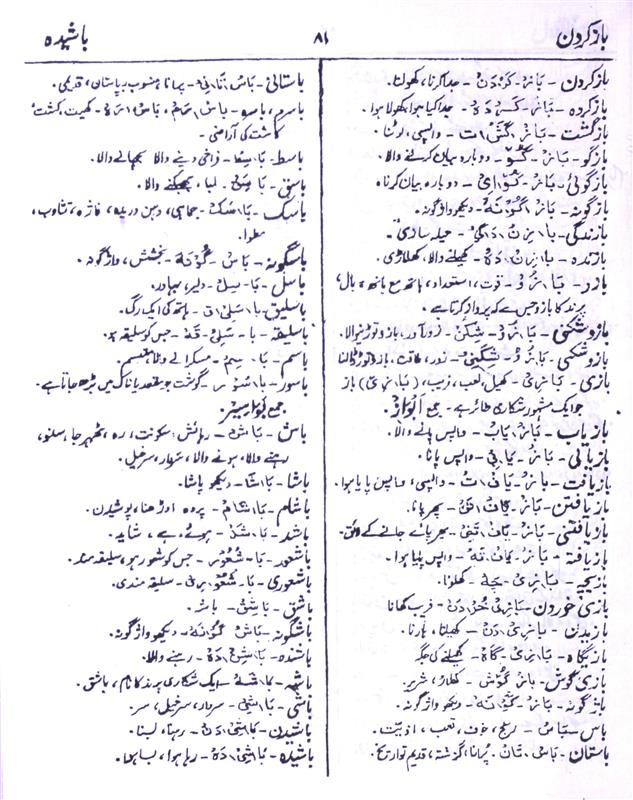 باز کردن
۸۱
باشیده
باز کردن - بَا زْ - کَرْ دَنْ - جدا کرنا، کھولنا.
باز کردہ - بَا زْ - کَرْ دَہْ - جدا کیا ہوا، کھولا ہوا.
باز گشت - بَا زْ ا گَشْ ا ت - واپسی، لوٹنا
باز گو - بَا زْ - گُوْ - دوبارہ بیان کرنے والا.
باز گوئی - بَا زْ - گُوْ ا ئی - دوبارہ بیان کرنا.
باز گونہ - بَا زْ - گُوْ نَہْ - دیکھو واژگونہ.
بازندگی - بَا ا زِنْ ا دَ ا گِیْ - حیلہ سازی.
بازندہ - بَا ا زِنْ ا دَہْ - کھیلنے والا، کھلاڑی.
بازو - بَا ا زُوْ - قوت، استعداد، ہاتھ مع بانہہ، بال،
پرند کا بازو جس سے کہ پرواز کرتا ہے.
بازو شکنی - بَا زُوْ - شِکَنْ - زور آور، بازو توڑنیوالا.
بازو شکنی - بَا زُوْ - شِکَنِیْ - زور، طاقت، بازو توڑ ڈالنا
بازی - بَا زِیْ - کھیل، لعب، فریب، (بَا زِیْ) باز
جو ایک مشہور شکاری طائر ہے - جمع اَبْوَاز.
باز یاب - بَا زْ ا یَاب - واپس پانے والا.
باز یابی - بَا زْ - یَا بِیْ - واپس پانا.
باز یافت - بَا زْ ا یَافْ ا ت - واپسی، واپس پایا ہوا.
باز یافتن - بَا زْ - یَافْ ا تَنْ - پھر پانا.
باز یافتنی - بَا زْ - یَافْ - تَنِیْ - پھر پائے جانے کے لائق.
باز یافتہ - بَا زْ - یَافْ تَہْ - واپس پایا ہوا.
بازیچہ - بَا زِیْ - چَہْ - کھلونا.
بازی خوردن - بَا زِیْ خُرْ دَنْ - فریب کھانا
بازیدن - بَا زِیْ ا دَنْ - کھیلنا، ہارنا.
بازیگاہ - بَا زِیْ - گَاہْ - کھیلنے کی جگہ
بازی گوش - بَا زِیْ گُوْش - کھلاڑ، شریر
باژگونہ - بَا زْ - گُوْ نَہْ - دیکھو واژگونہ.
باس - بَاس - رنج، خوف، تعب، اذیت.
باستان - بَاسْ ا تَان - پرانا، گذشتہ، قدیم تواریخ.
باستانی - بَاسْ ا تَا نِیْ - پرانا منسوب بباستان، قدیمی.
باسرم، باسرہ - بَاسْ ا رَم، بَاسْ ا رَہْ - کھیت، کشت،
کاشت کی آراضی.
باسط - بَا سِط - فراخی دینے والا، بچھانے والا.
باسق - بَا سِقْ - لمبا،
باسک - بَا ا سُکْ - جماہی، دہن دریدہ، فاژہ، تثاوب،
باسگونہ - بَاسْ - گُوْ نَہْ - واژگونہ.
باسل - بَا - سِل - دلیر، بہادر.
باسلیق - بَا ا سَلِیْ ا ق - ہاتھ کی ایک رگ.
باسلیقہ - بَا - سَلِیْ - قَہْ - جس کو سلیقہ ہو.
باسم - بَا - سِم - مسکرانے والا، متبسم.
باسور - بَا ا سُوْ ر - گوشت جو مقعد یا ناک میں بڑھ جاتا ہے.
جمع بَوَاسِیْر.
باش - بَاشْ - رہائش، سکونت، رہ، ٹھہر جا، سلنو،
رہنے والا، ہونے والا، سردار، سرخیل.
باشا - بَا ا شَا - دیکھو پاشا.
باشام - بَا ا شَام - پردہ، اوڑھنا، پوشیدن.
باشد - بَا ا شَدْ - ہوئے، ہے، شاید.
باشعور - بَا - شُعُوْر - جس کو شعور ہو، سلیقہ مند.
باشعوری - بَا - شُعُوْ رِیْ - سلیقہ مندی.
باشق - بَا شِقْ - باشہ.
باشگونہ - بَاشْ گُوْ نَہْ - دیکھو واژگونہ.
باشندہ - بَا شِنْ ا دَہْ - رہنے والا.
باشہ - بَا ا شَہْ - ایک شکاری پرند کا نام، باشق.
باشی - بَا ا شِیْ - سردار، سرخیل، سر.
باشیدن - بَا ا شِیْ ا دَنْ - رہنا، بسنا.
باشیدہ - بَا ا شِیْ ا دَہْ - رہا ہوا، بسا ہوا.